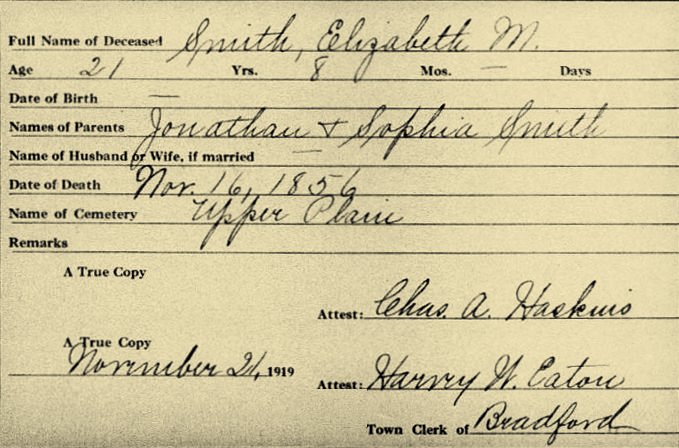 Full Name of Deceased Smith, Elizabeth M.
Age 21 Yrs. 8 Mos. — Days
Date of Birth —
Names of Parents Jonathan & Sophia Smith
Name of Husband or Wife, if married —
Date of Death Nov. 16, 1856
Name of Cemetery Upper Plain
Remarks
A True Copy
Attest: Chas. A. Haskins
A True Copy
November 21, 1919
Attest: Harvey W. Eaton
Town Clerk of Bradford